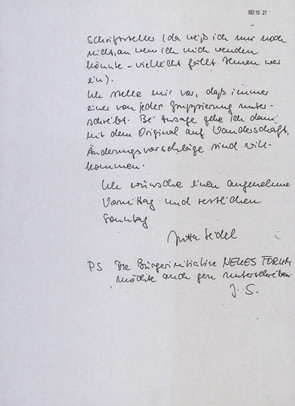 Schriftsteller (da weiß ich nur noch
nicht, an wen ich mich wenden
könnte – vielleicht fällt Ihnen wer
ein).
Ich stelle mir vor, daß immer
einer von jeder Gruppierung unter-
schreibt. Bei Zusage gehe ich dann
mit dem Original auf Wanderschaft.
Änderungsvorschläge sind will-
kommen.
Ich wünsche einen angenehmen
Vormittag und restlichen
Sonntag
Jutta Seidel
PS Die Bürgerinitiative NEUES FORUM
möchte auch gern unterschreiben.
J. S.